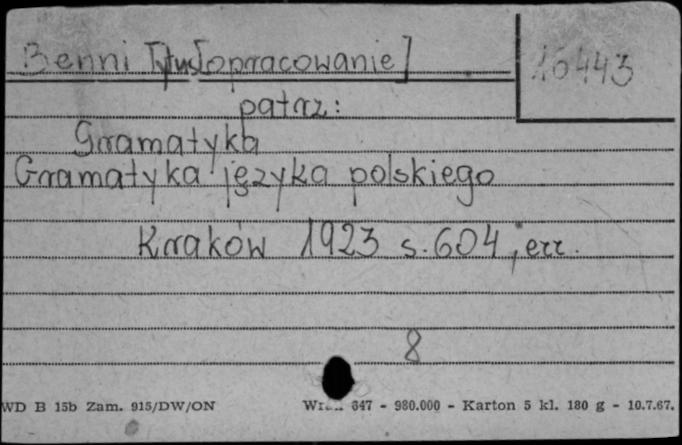 Benni Tytus [opracowanie]
10443
patrz:
Gramatyka
Gramatyka języka polskiego
Kraków 1923 s. 604, err.
8
WD B 15b Zam. 915/DW/ON
647 - 980.000 - Karton 5 kl. 180 g - 10.7.67.